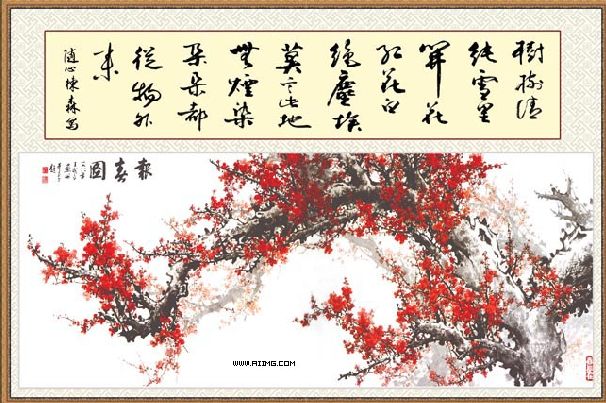 樹樹清
純雪里
開花
紅花白
絕塵埃
莫言此地
無煙染
朵朵都
從物外
來
隨心陳森寫
報春圖
WWW.AIIMG.COM